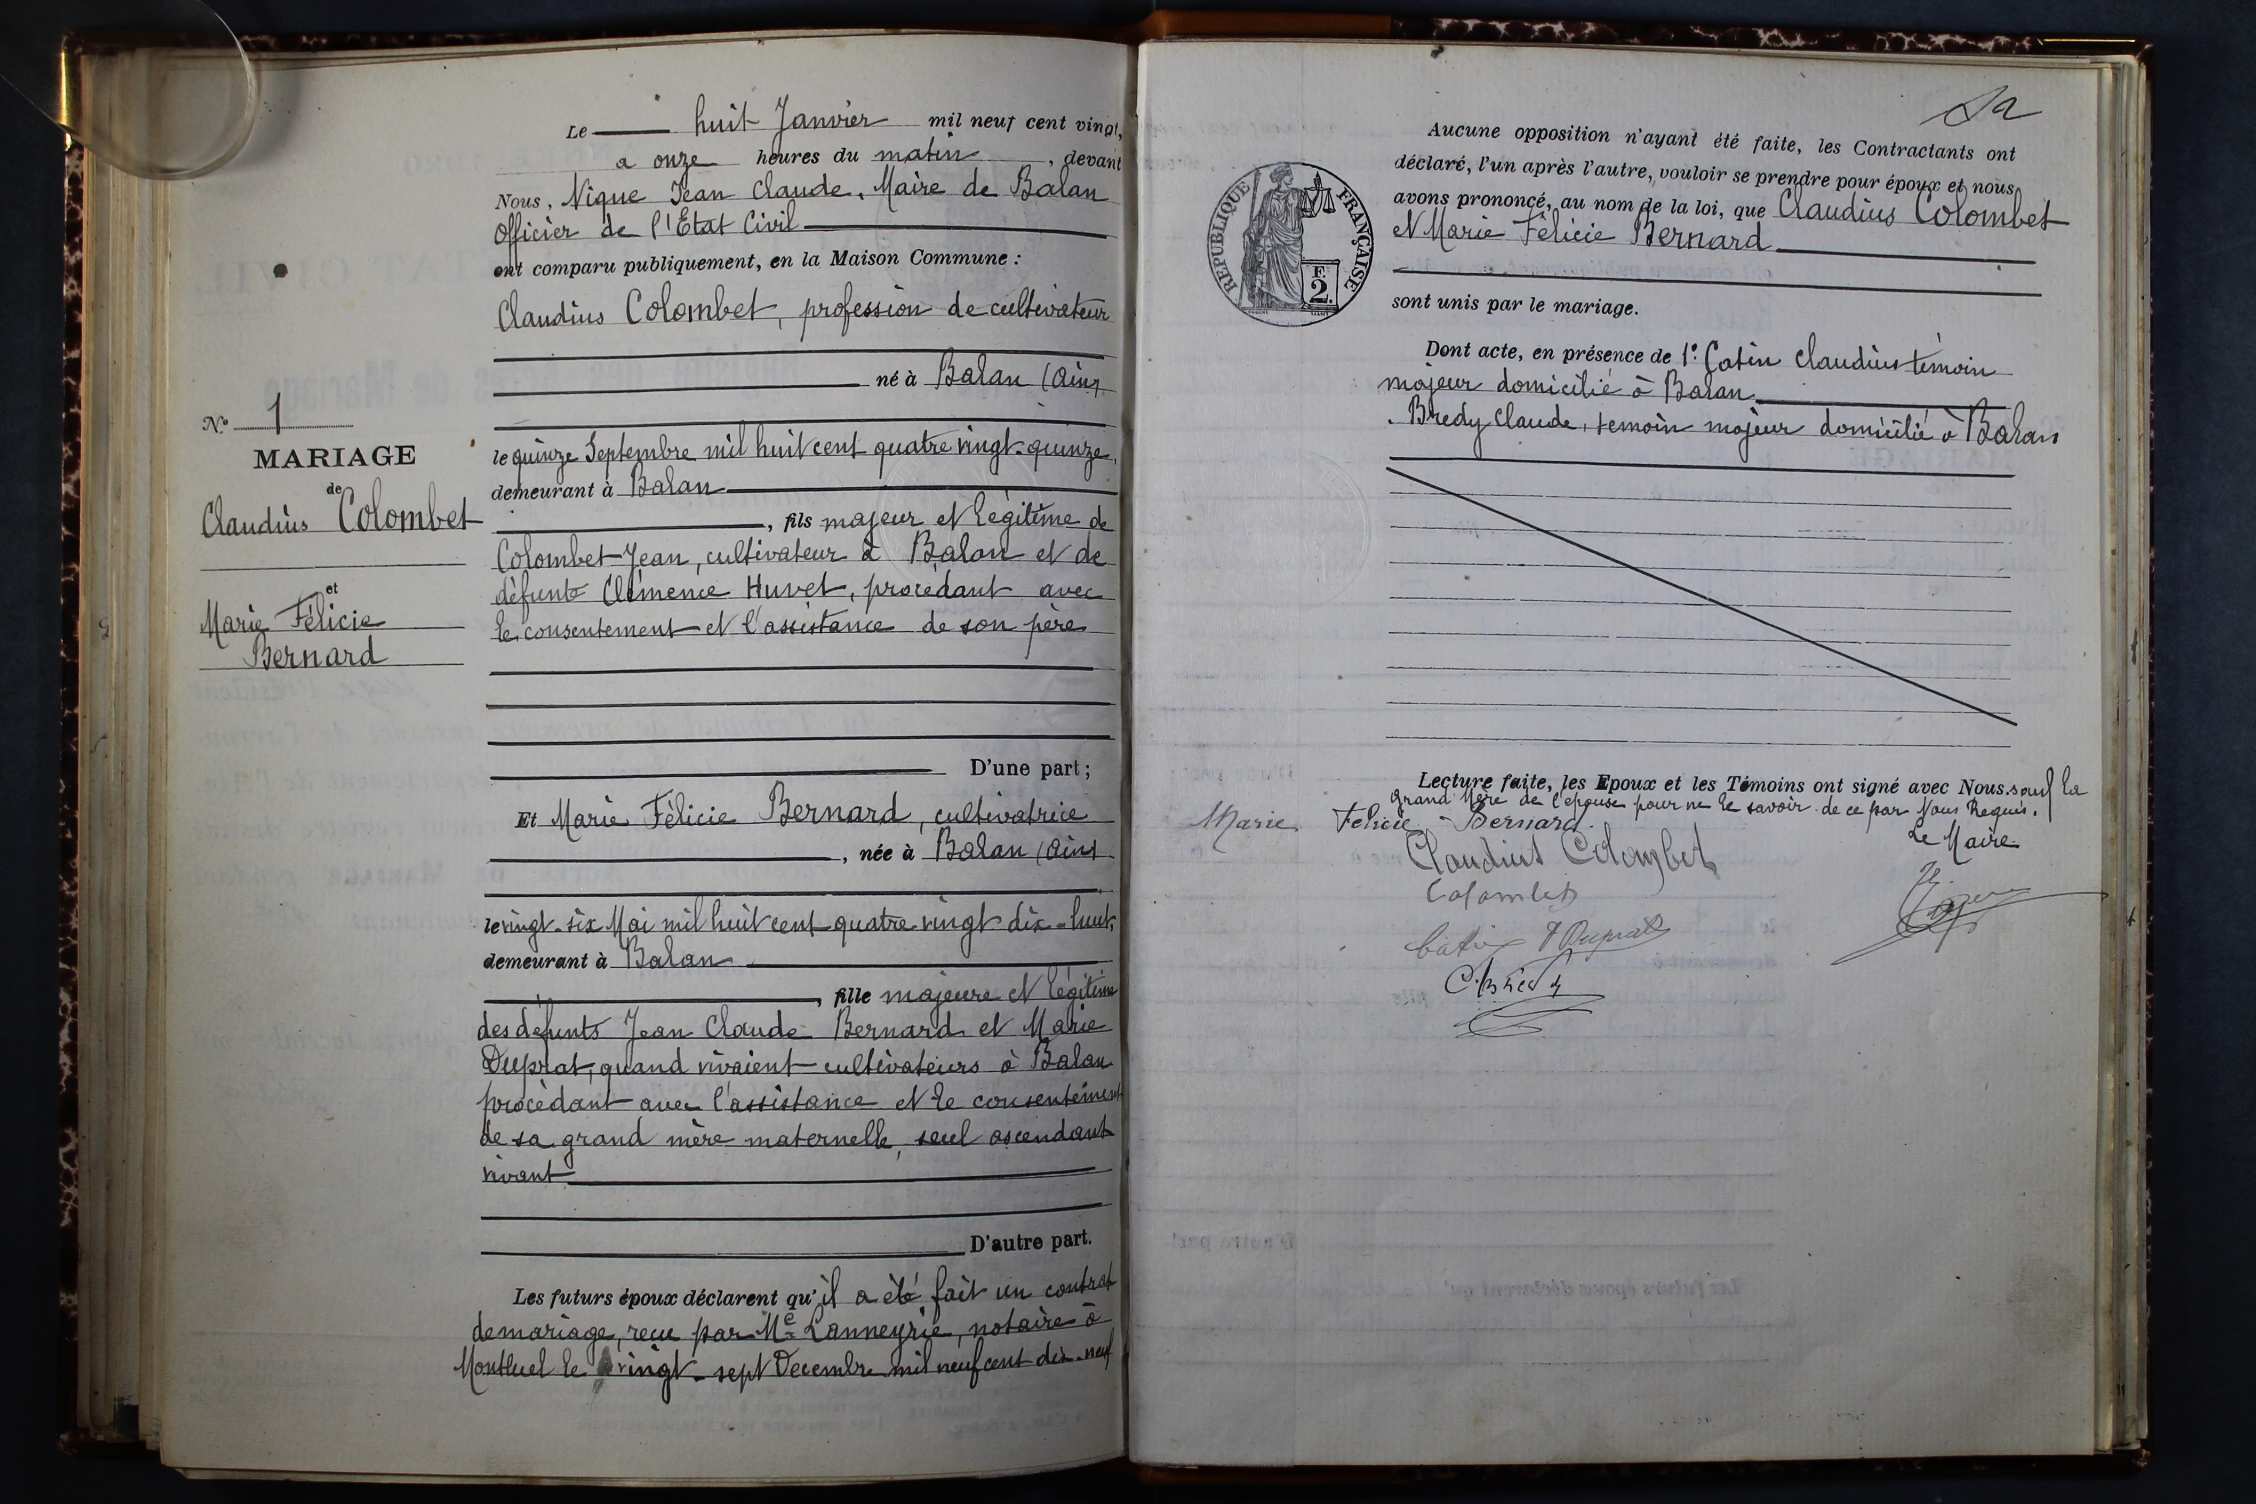 Le huit Janvier mil neuf cent vingt,
a onze heures du matin, devant
Nous, Nique Jean Claude, Maire de Balan
Officier de l'Etat Civil
ont comparu publiquement, en la Maison Commune :
Claudius Colombet, profession de cultivateur
né à Balan (Ain)
le quinze Septembre mil huit cent quatre vingt-quinze,
demeurant à Balan
, fils majeur et légitime de
Colombet Jean, cultivateur à Balan et de
défunte Clémence Huvet, procédant avec
le consentement et l'assistance de son père
D'une part ;
Nº 1
MARIAGE
de
Claudius Colombet
et
Marie Félicie
Bernard
Et Marie Félicie Bernard, cultivatrice
, née à Balan (Ain)
le vingt-six Mai mil huit cent quatre vingt dix-huit,
demeurant à Balan
, fille majeure et légitime
des défunts Jean Claude Bernard et Marie
Duprat, quand vivaient cultivateurs à Balan
procédant avec l'assistance et le consentement
de sa grand mère maternelle, seul ascendant
vivant
D'autre part.
Les futurs époux déclarent qu'il a été fait un contrat
de mariage, reçu par Me Lanneyrie, notaire à
Montluel le vingt-sept Decembre mil neuf cent dix-neuf
Aucune opposition n'ayant été faite, les Contractants ont
déclaré, l'un après l'autre, vouloir se prendre pour époux et nous
avons prononcé, au nom de la loi, que Claudius Colombet
et Marie Félicie Bernard
sont unis par le mariage.
RÉPUBLIQUE FRANÇAISE
F.
2.
Dont acte, en présence de 1º Catin Claudius témoin
majeur domicilié à Balan
. Bredy Claude, temoin majeur domicilié à Balan
Lecture faite, les Epoux et les Témoins ont signé avec Nous. sauf la
grand Mère de l'épouse pour ne le savoir de ce par Nous Requis.
Marie Felicie Bernard
Le Maire
Claudius Colombet
Colombet
Catin Duprat
C. Bredy